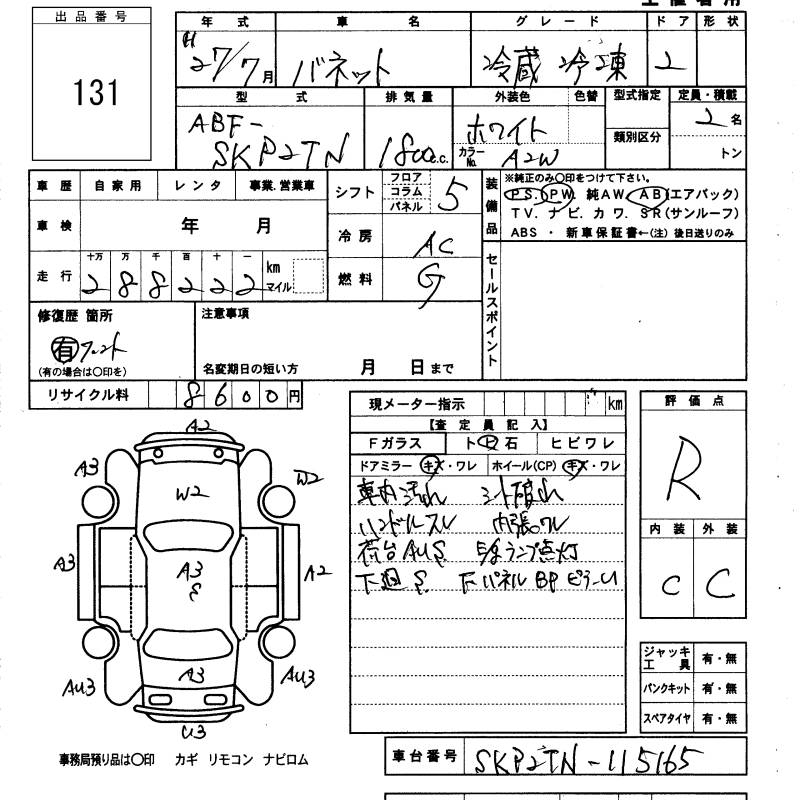 出品番号
131
年式 車名 グレード ドア 形状
H27/7月 バネット 冷蔵冷凍 2
型式 排気量 外装色 色替 型式指定 定員・積載
ABF-
SKP2TN 1800c.c. ホワイト カラーNo. A2W 類別区分 2名
トン
車歴 自家用 レンタ 事業.営業車
車検 年 月
走行 十万 万 千 百 十 一
288222 km マイル
シフト フロア コラム パネル 5
冷房 AC
燃料 G
装備品
※純正のみ〇印をつけて下さい。
PS. PW. 純AW. AB(エアバック)
TV. ナビ. カワ. SR(サンルーフ)
ABS ・ 新車保証書←(注)後日送りのみ
セールスポイント
修復歴 箇所
有
(有の場合は〇印を)
注意事項
名変期日の短い方 月 日まで
リサイクル料 8600円
現メーター指示 km
【査定員記入】
Fガラス トビ石 ヒビワレ
ドアミラー キズ・ワレ ホイール(CP) キズ・ワレ
車内汚れ シート破れ
ハンドルスレ 内張ワレ
荷台AUS ランプ点灯
下廻S
評価点
R
内装 外装
C C
A2
A3
W2
W2
A3
A3
A2
S
A3
AU3
AU3
U3
ジャッキ工具 有・無
パンクキット 有・無
スペアタイヤ 有・無
事務局預り品は〇印 カギ リモコン ナビロム
車台番号 SKP2TN-115165